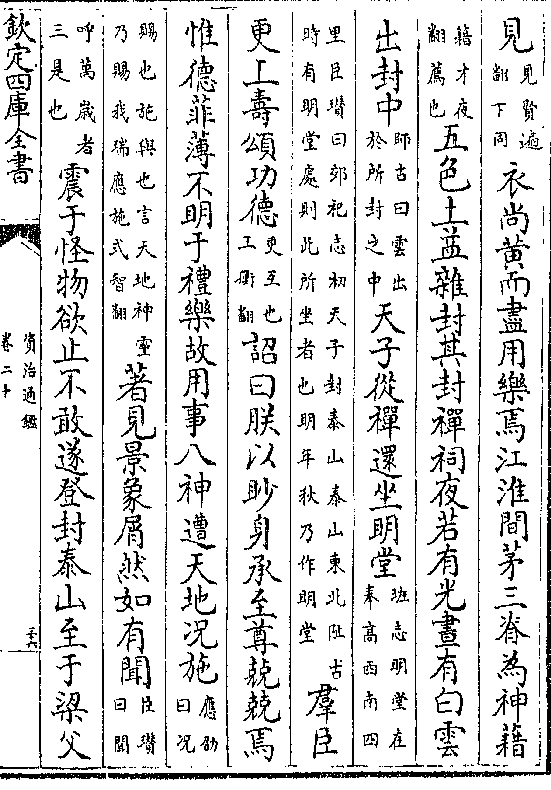 見見賢遍翻下同衣尚黃而盡用樂焉江淮間茅三脊為神藉
藉才夜翻薦也五色土益雜封其封禪祠夜若有光晝有白雲
出封中師古曰雲出於所封之中天子從禪還坐明堂班志明堂在奉高西南四
里臣瓚曰郊祀志初天子封泰山泰山東北阯古時有明堂處則此所坐者也明年秋乃作明堂羣臣
更上壽頌功德更互也工衡翻詔曰朕以眇身承至尊兢兢焉
惟德菲薄不明于禮樂故用事八神遭天地况施應劭曰况
賜也施與也言天地神靈乃賜我瑞應施式智翻著見景象屑然如有聞臣瓚曰聞
呼萬歲者三是也震于怪物欲止不敢遂登封泰山至于梁父
欽定四庫全書
資治通鑑
卷二十
三六